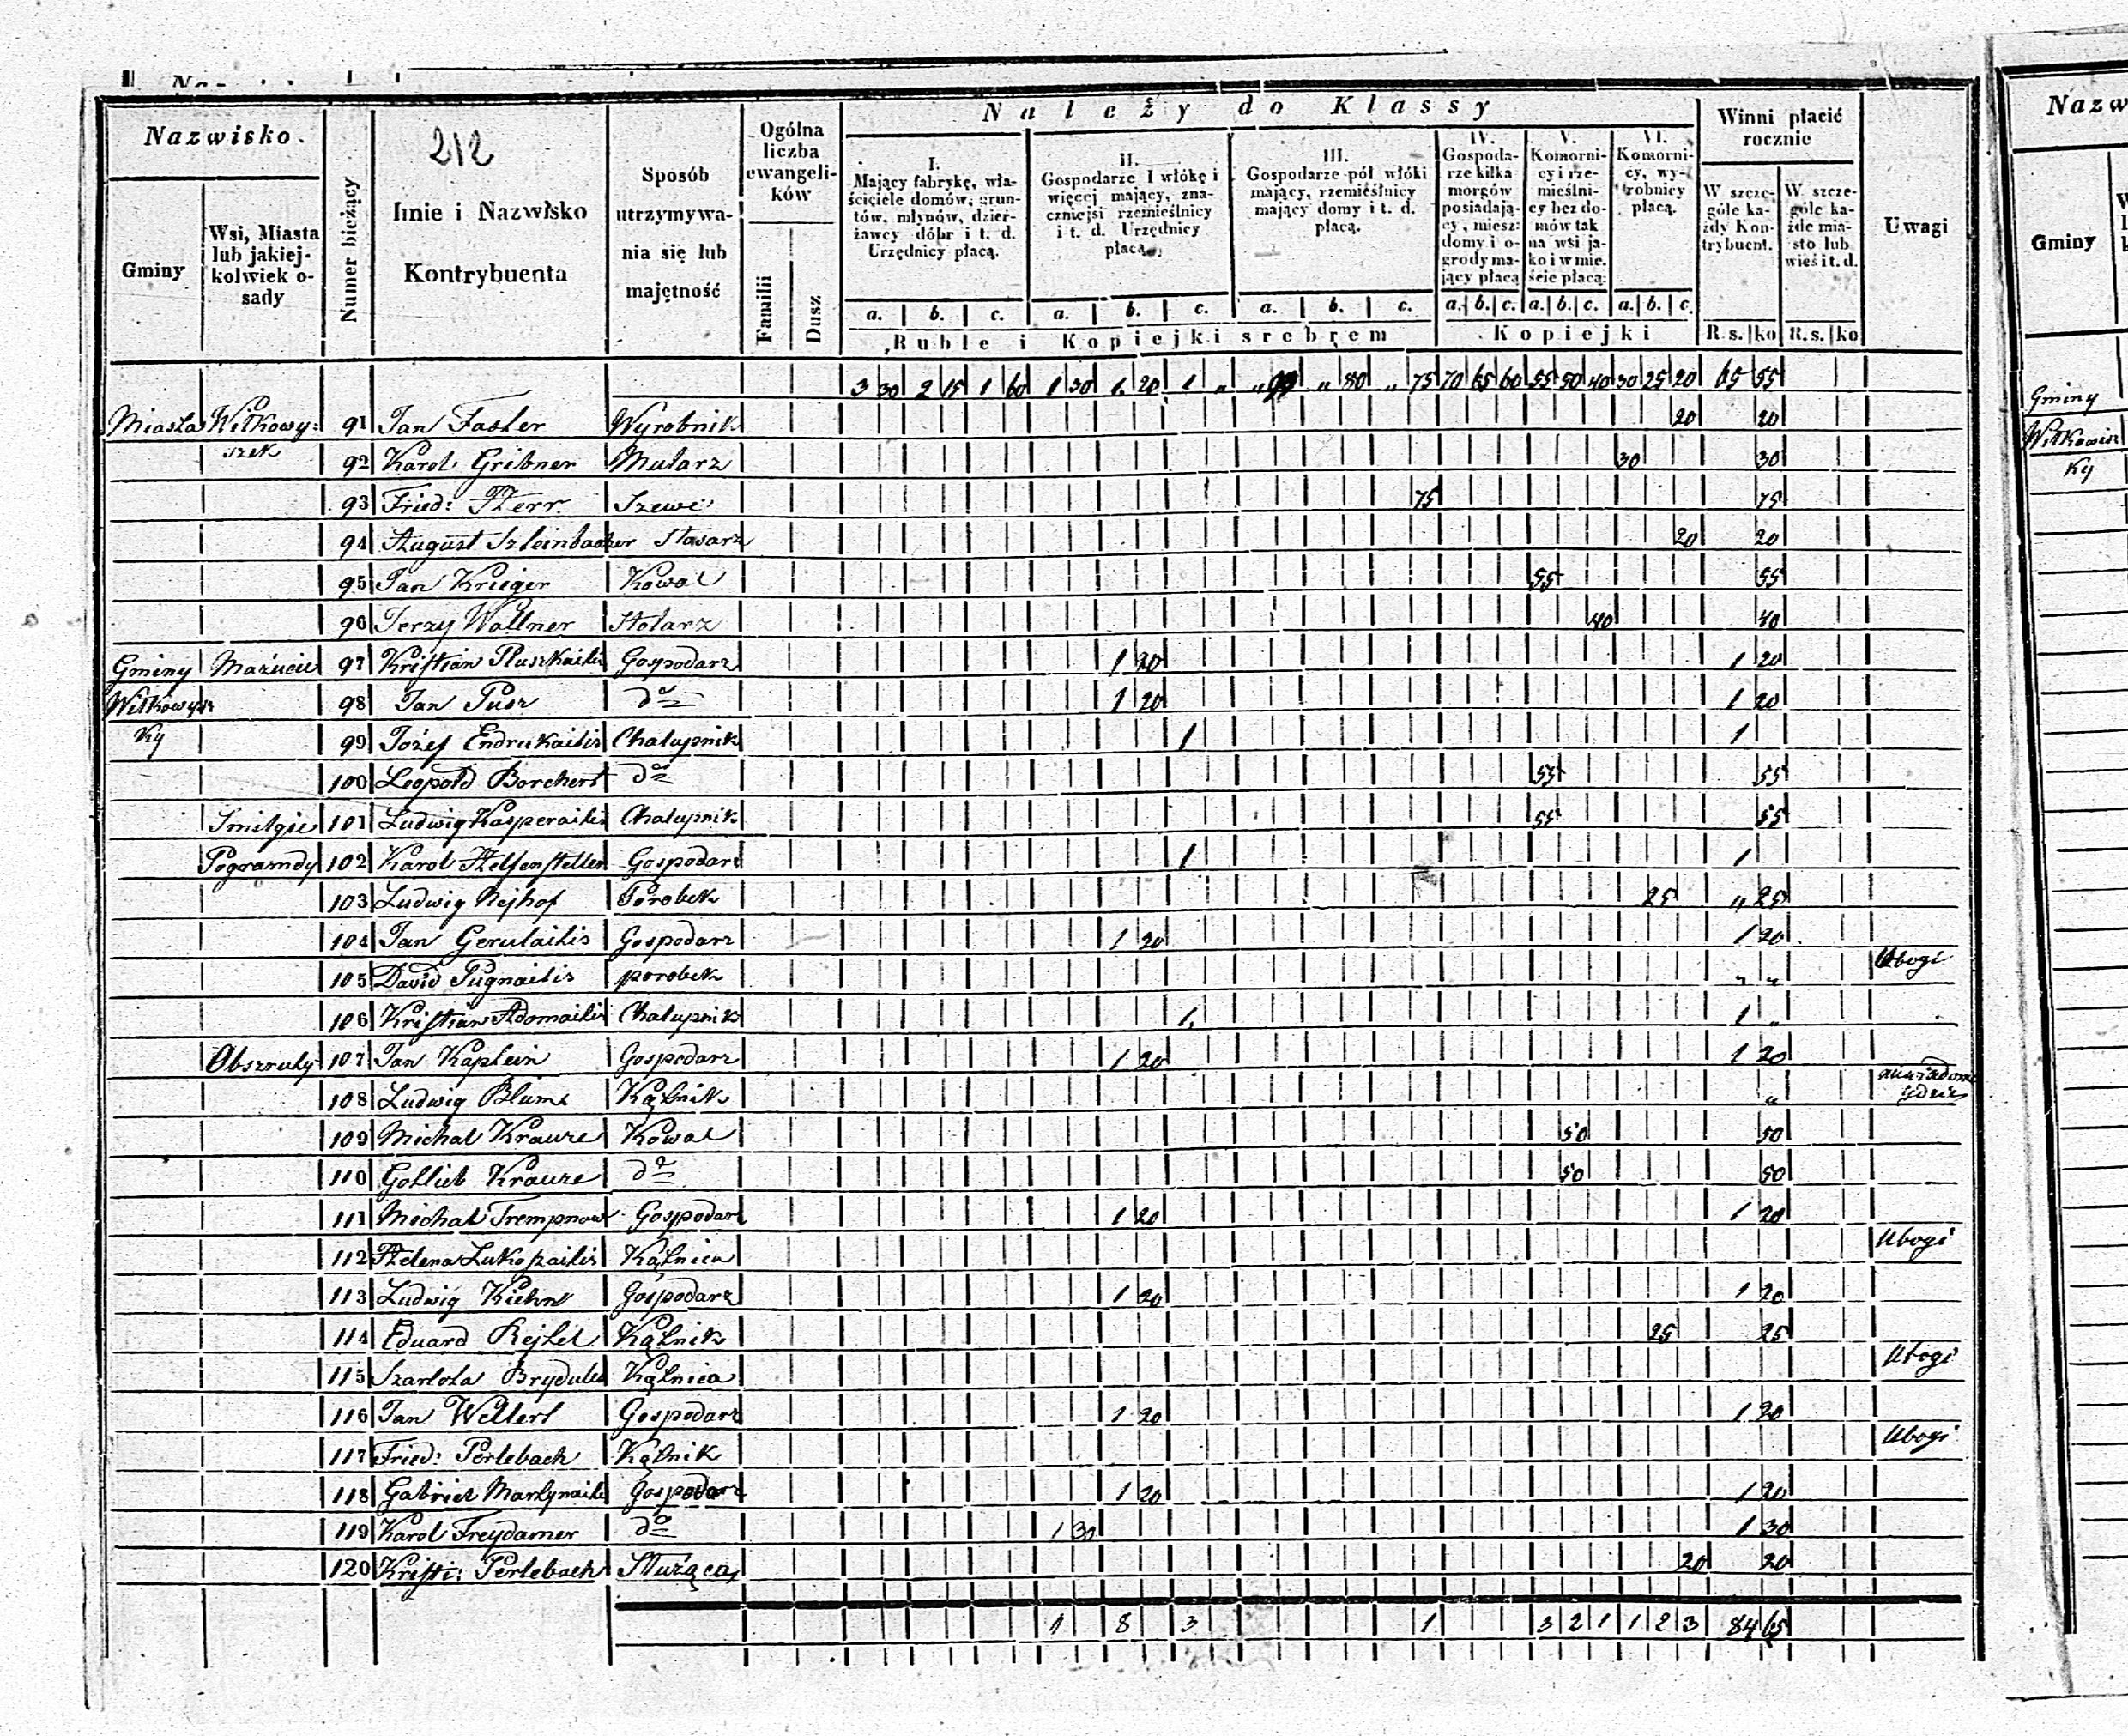 Nazwisko.
Gminy
Wsi, Miasta lub jakiej-kolwiek o-sady
Numer bieżący
212
Imie i Nazwisko Kontrybuenta
Sposób utrzymywa-nia się lub majętność
Ogólna liczba ewangeli-ków
Familii
Dusz
Należy do Klassy
I. Mający fabrykę, wła-ściciele domów, grun-tów, młynów, dzier-żawcy dóbr i t. d. Urzędnicy płacą.
II. Gospodarze 1 włókę i więcej mający, zna-czniejsi rzemieślnicy i t. d. Urzędnicy płacą.
III. Gospodarze pół włóki mający, rzemieślnicy mający domy i t. d. płacą.
IV. Gospoda-rze kilka morgów posiadają-cy, miesz: domy i o-grody ma-jący płacą
V. Komorni-cy i rze-mieślni-cy bez do-mów tak na wsi ja-ko i w mie. ście płacą:
VI. Komorni-cy, wy-robnicy płacą.
a. b. c. a. b. c. a. b. c. a. b. c. a. b. c. a. b. c.
Ruble i Kopiejki srebrem
Kopiejki
Winni płacić rocznie
W szcze-góle ka-żdy Kon-trybuent.
W szcze-góle ka-żde mia-sto lub wieś i t. d.
R. s. ko R. s. ko
Uwagi
3 30 2 15 1 60 1 30 1 20 1 „ „ 90 „ 80 „ 75 70 65 60 55 50 40 30 25 20 65 55
Miasta Wiłkowy: 91 Jan Faster Wyrobnik 20 20
szek 92 Karol Gribner Mularz 30 30
93 Fried: Herr Szewc 75 75
94 August Szleinbacher Stolarz 20 20
95 Jan Krieger Kowal 55 55
96 Jerzy Wallner Stolarz 40 40
Gminy Mażucie 97 Kristian Pluszkaitis Gospodarz 1 20 1 20
98 Jan Pusz do 1 20 1 20
ky 99 Józef Endrukaitis Chałupnik 1 1
100 Leopold Borchert do 55 55
Smilgie 101 Ludwig Kasperaitis Chałupnik 55 55
Pogramdy 102 Karol Helfensteller Gospodarz 1 1
103 Ludwig Rejhof Parobek 25 „ 25
104 Jan Gerulaitis Gospodarz 1 20 1 20
105 David Pugnaitis parobek „ „ Ubogi
106 Kristian Adomaitis Chałupnik 1. 1 „
Obszruty 107 Jan Kaplein Gospodarz 1 20 1 20
108 Ludwig Blum Kątnik „
109 Michał Krauze Kowal 50 50
110 Gotlieb Krauze do 50 50
111 Michał Trempnau Gospodarz 1 20 1 20
112 Helena Lukoszaitis Kątnica Ubogi
113 Ludwig Kiehn Gospodarz 1 20 1 20
114 Eduard Rejtel Kątnik 25 25
115 Szarlota Kątnica Ubogi
116 Jan Wellert Gospodarz 1 20 1 20
117 Fried: Perlebach Kątnik Ubogi
118 Gabriel Martynaitis Gospodarz 1 20 1 20
119 Karol Freydamer do 1 30 1 30
120 Kristi: Perlebach Służąca 20 20
1 8 3 1 3 2 1 1 2 3 84 65
Nazw
Gminy
Gminy
ky